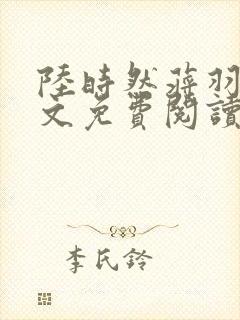 陸時然蒋羽
文免費閱讀
李氏鈴